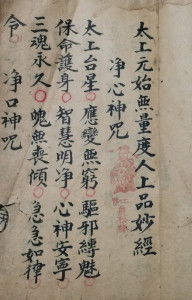 太上元始無量度人上品妙經
净心神呪
太上台星 應變無窮 驅邪縛魅
保命護身 智慧明净 心神安寧
三魂永久 魄無喪傾 急急如律
令 净口神呪